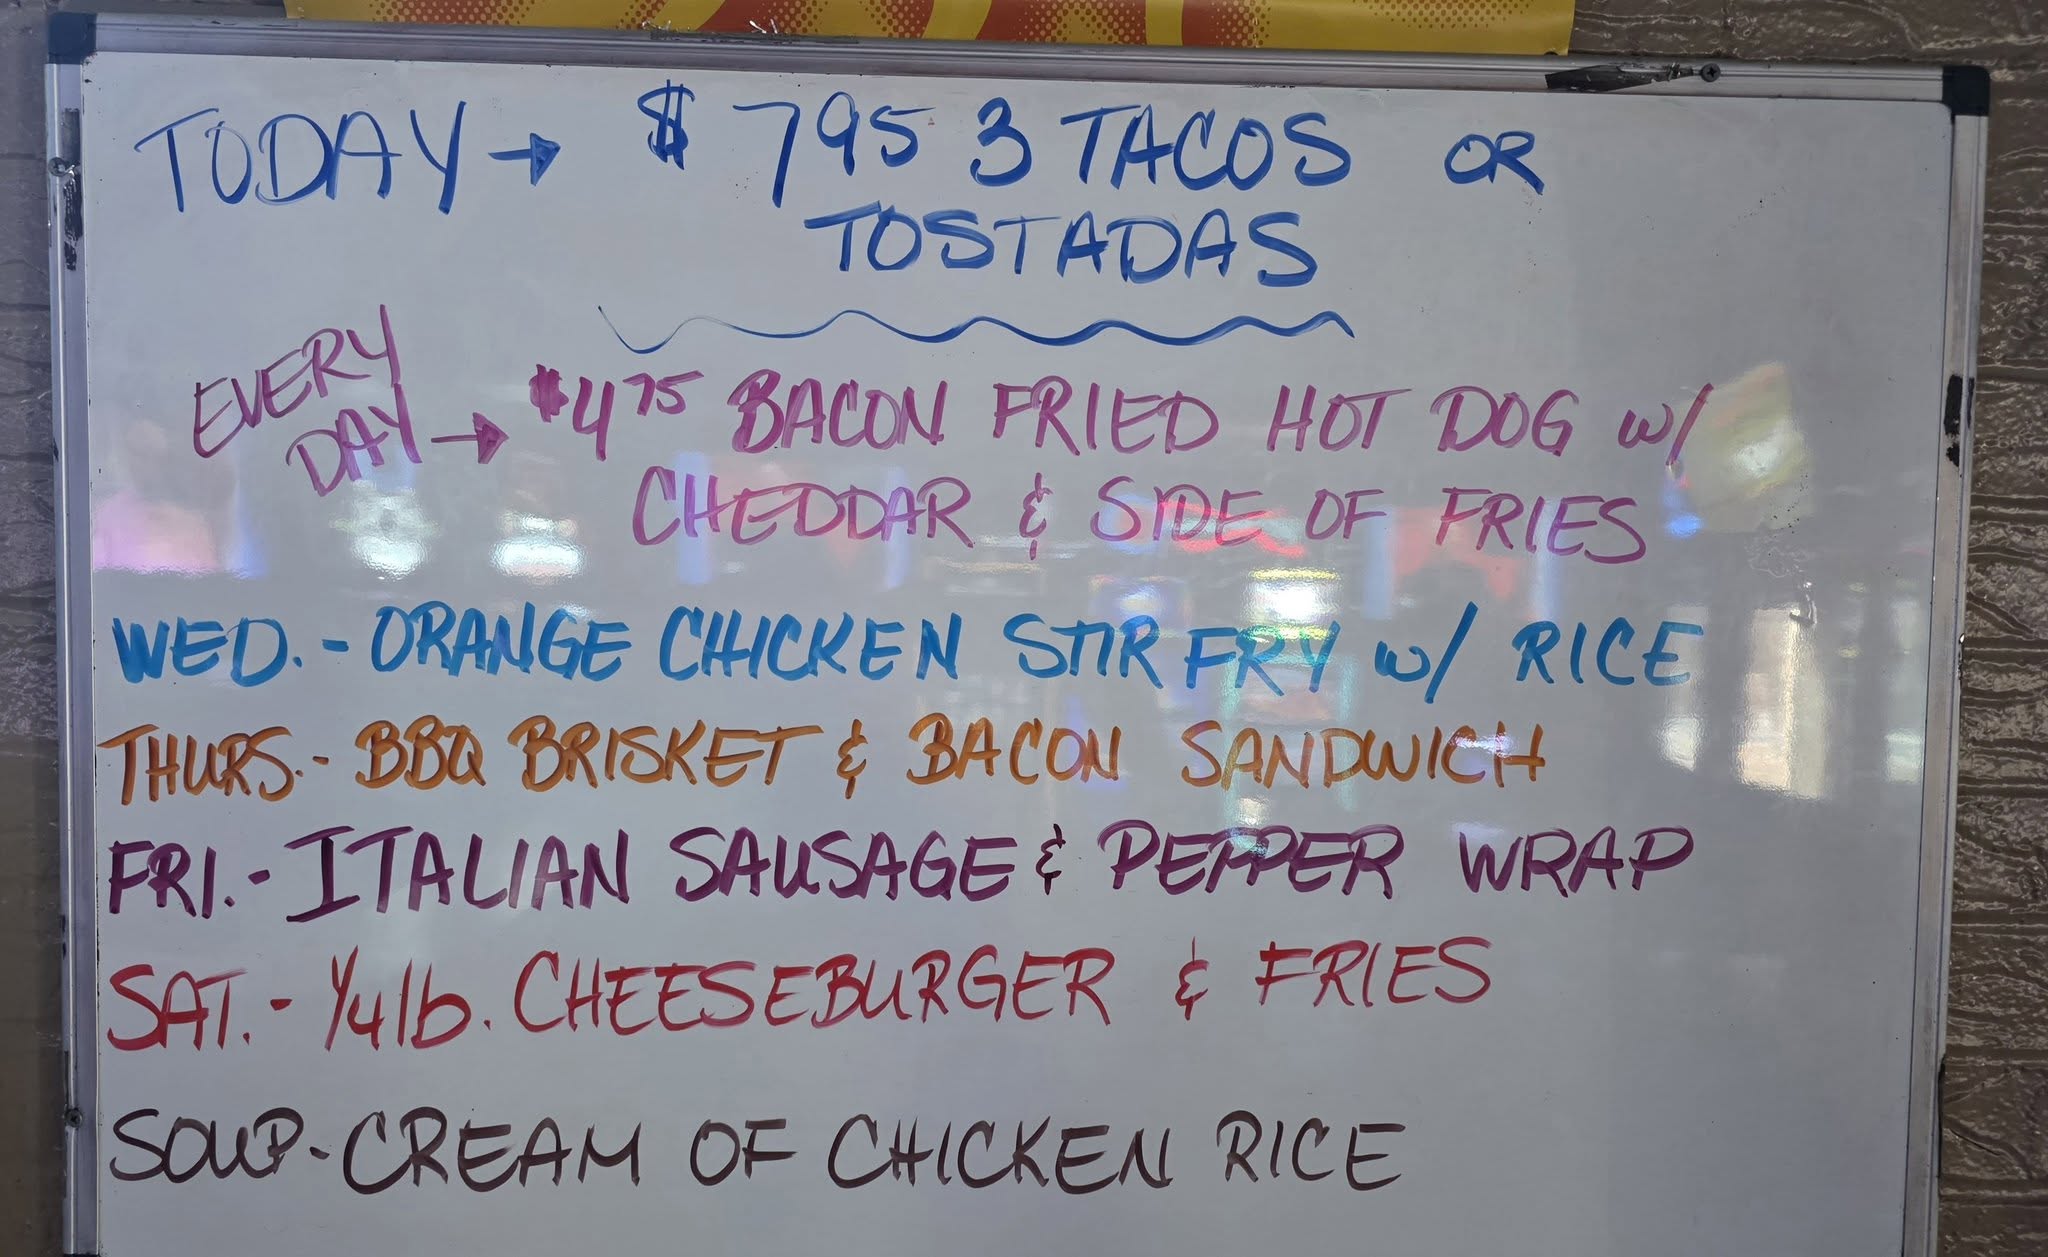 TODAY → $ 795 3 TACOS OR
TOSTADAS
EVERY
DAY → $4 75 BACON FRIED HOT DOG w/
CHEDDAR & SIDE OF FRIES
WED. - ORANGE CHICKEN STIR FRY w/ RICE
THURS. - BBQ BRISKET & BACON SANDWICH
FRI. - ITALIAN SAUSAGE & PEPPER WRAP
SAT. - 1/4 lb. CHEESEBURGER & FRIES
SOUP - CREAM OF CHICKEN RICE